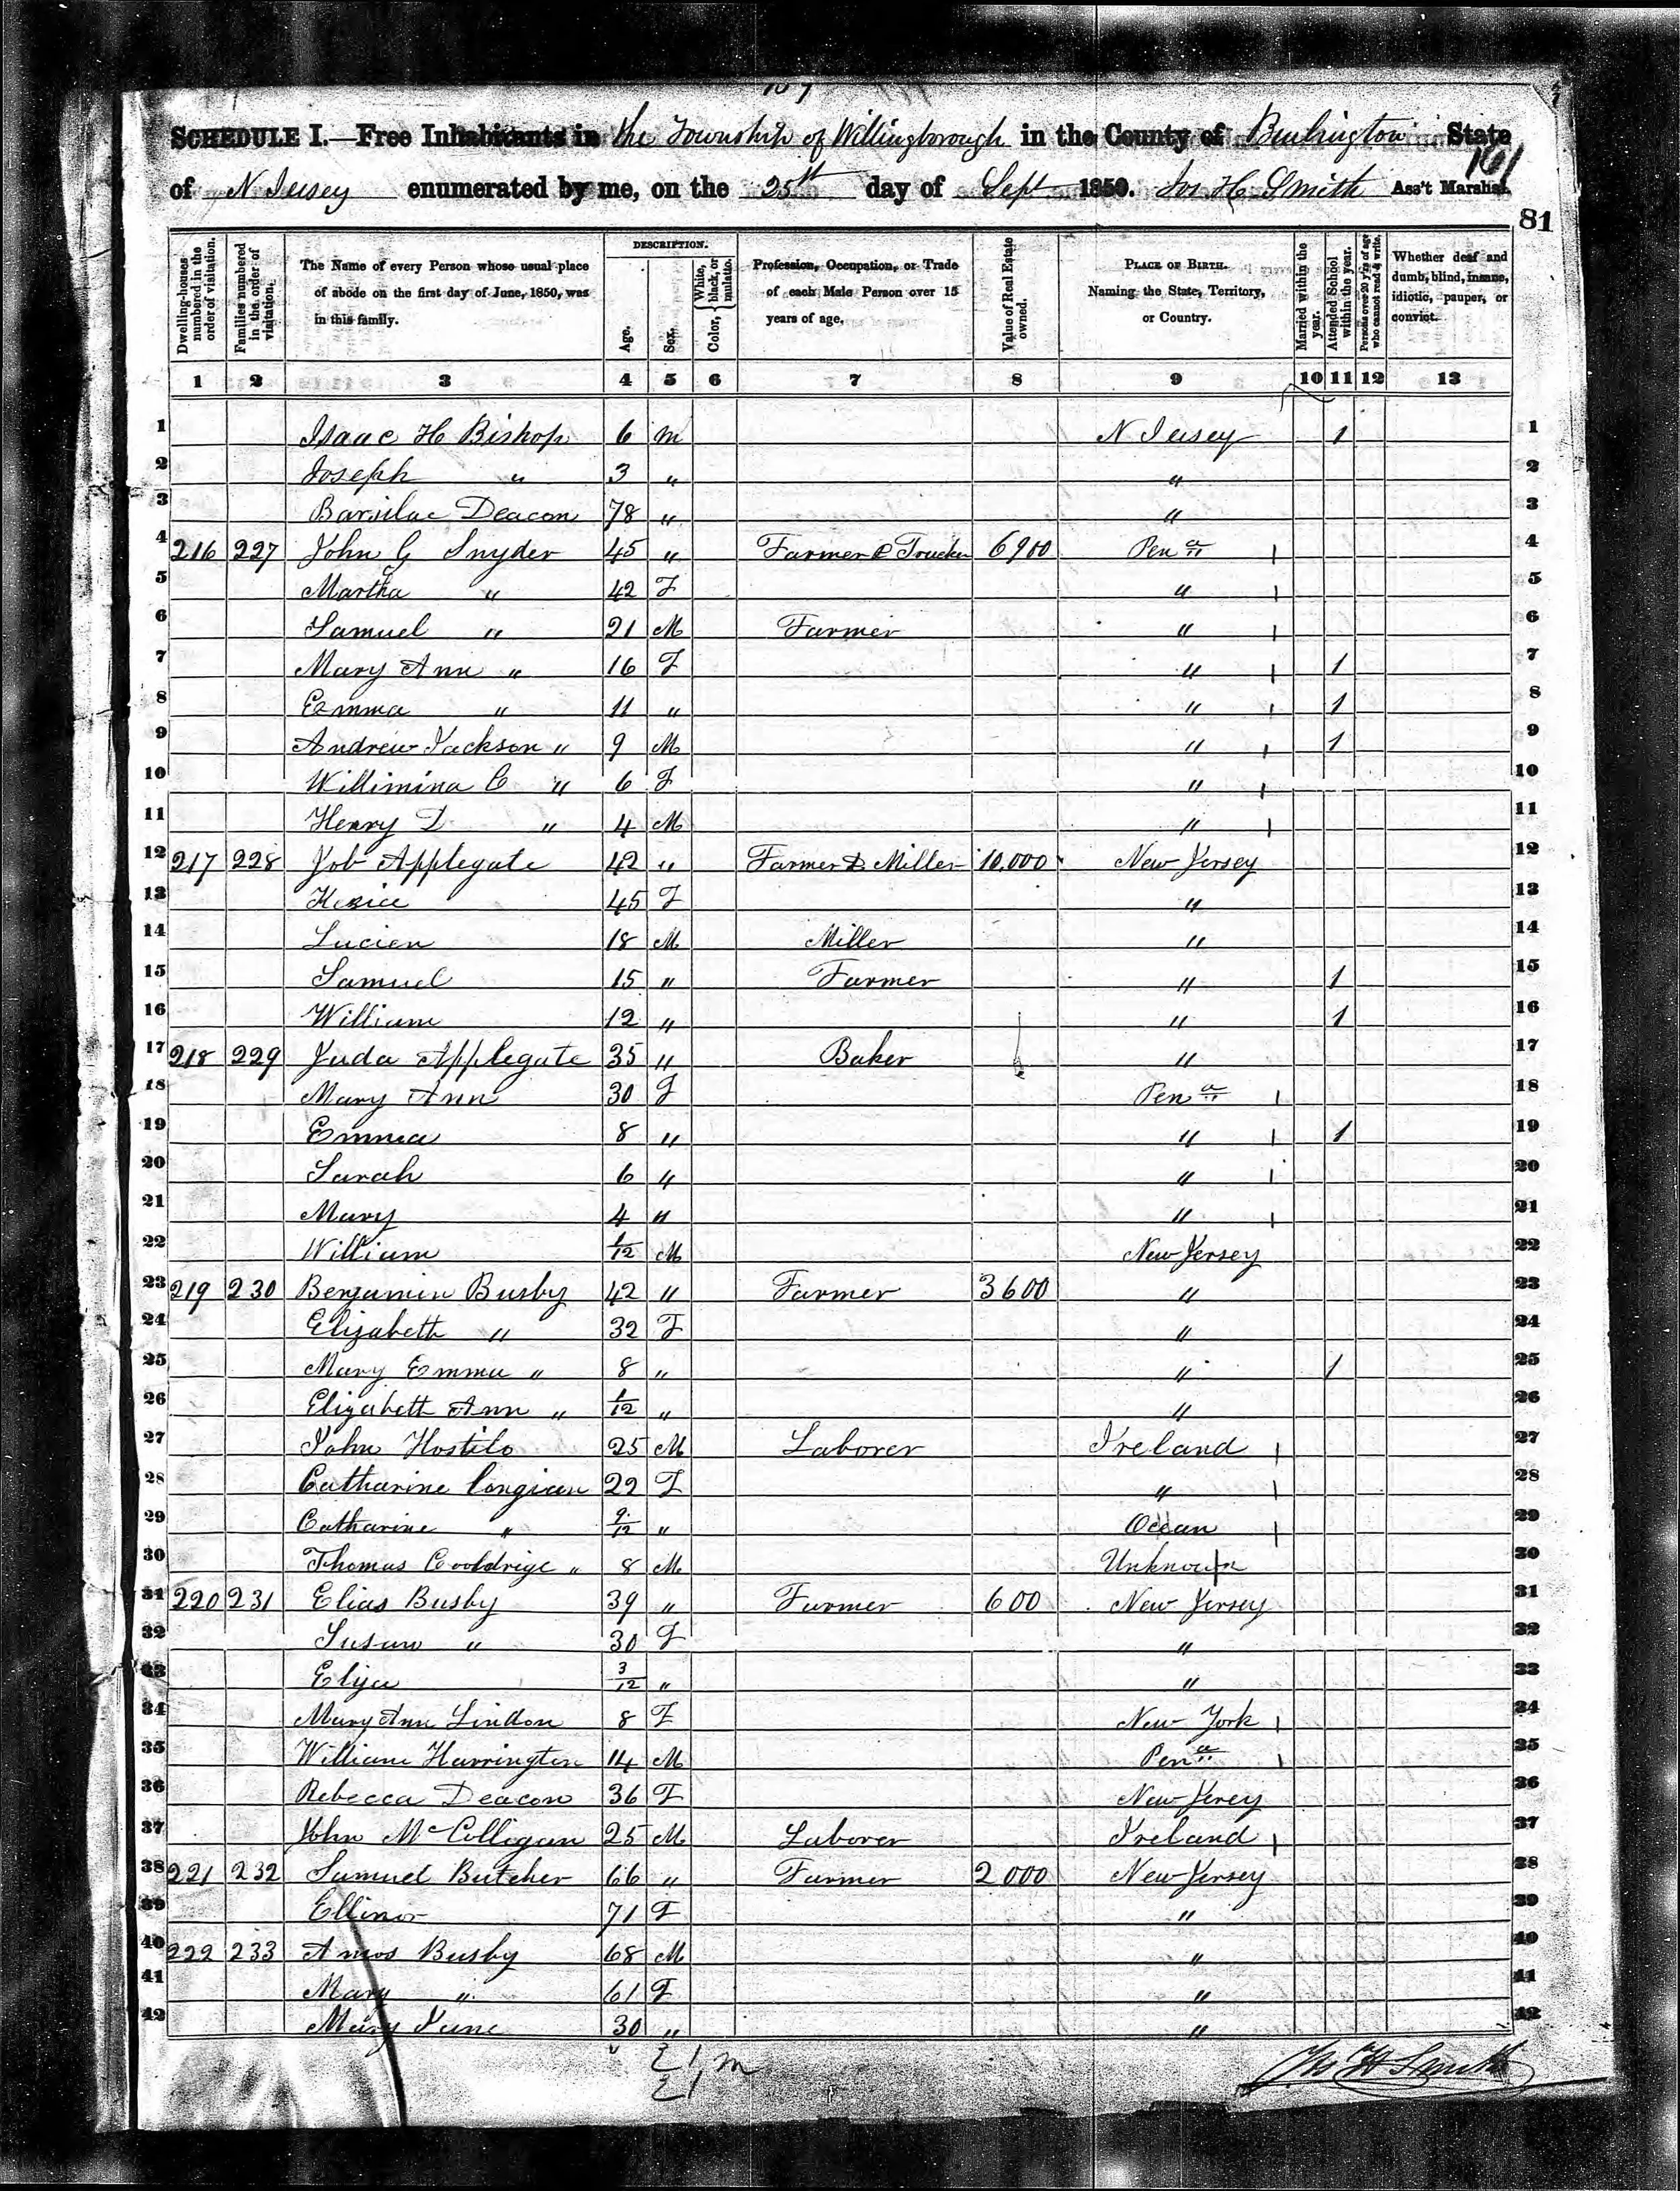 SCHEDULE I.—Free Inhabitants in the Township of Willingborough in the County of Burlington State
161
of N Jersey enumerated by me, on the 25th day of Sept 1850. Jos H Smith Ass't Marshal.
81
Dwelling-houses numbered in the order of visitation.
Families numbered in the order of visitation.
The Name of every Person whose usual place of abode on the first day of June, 1850, was in this family.
DESCRIPTION.
Age.
Sex.
Color, { White, black, or mulatto.
Profession, Occupation, or Trade of each Male Person over 15 years of age.
Value of Real Estate owned.
PLACE OF BIRTH. Naming the State, Territory, or Country.
Married within the year.
Attended School within the year.
Persons over 20 y'rs of age who cannot read & write.
Whether deaf and dumb, blind, insane, idiotic, pauper, or convict.
1 2 3 4 5 6 7 8 9 10 11 12 13
1 Isaac H Bishop 6 m N Jersey 1 1
2 Joseph " 3 " " 2
3 Barsilac Deacon 78 " " 3
4 216 227 John G Snyder 45 " Farmer & Trucker 6900 Pena 4
5 Martha " 42 F " 5
6 Samuel " 21 M Farmer " 6
7 Mary Ann " 16 F " 1 7
8 Emma " 11 " " 1 8
9 Andrew Jackson " 9 M " 1 9
10 Willimina C " 6 F " 10
11 Henry D " 4 M " 11
12 217 228 Job Applegate 42 " Farmer & Miller 10,000 New Jersey 12
13 Kesice 45 F " 13
14 Lucien 18 M Miller " 14
15 Samuel 15 " Farmer " 1 15
16 William 12 " " 1 16
17 218 229 Juda Applegate 35 " Baker " 17
18 Mary Ann 30 F Pena 18
19 Emma 8 " " 1 19
20 Sarah 6 " " 20
21 Mary 4 " " 21
22 William 1/12 M New Jersey 22
23 219 230 Benjamin Busby 42 " Farmer 3600 " 23
24 Elizabeth " 32 F " 24
25 Mary Emma " 8 " " 1 25
26 Elizabeth Ann " 1/12 " " 26
27 John Hostilo 25 M Laborer Ireland 27
28 Catharine Congican 22 F " 28
29 Catharine " 9/12 " Ocean 29
30 Thomas Cooldrige " 8 M Unknown 30
31 220 231 Elias Busby 39 " Farmer 600 New Jersey 31
32 Susan " 30 F " 32
33 Eliza 3/12 " " 33
34 Mary Ann Lindon 8 F New York 34
35 William Harrington 14 M Pena 35
36 Rebecca Deacon 36 F New Jerey 36
37 John McColligan 25 M Laborer Ireland 37
38 221 232 Samuel Butcher 66 " Farmer 2000 New Jersey 38
39 Ellinor 71 F " 39
40 222 233 Amos Busby 68 M " 40
41 Mary " 61 F " 41
42 Mary Jane 30 " " 42
21 m
21
Jos H Smith